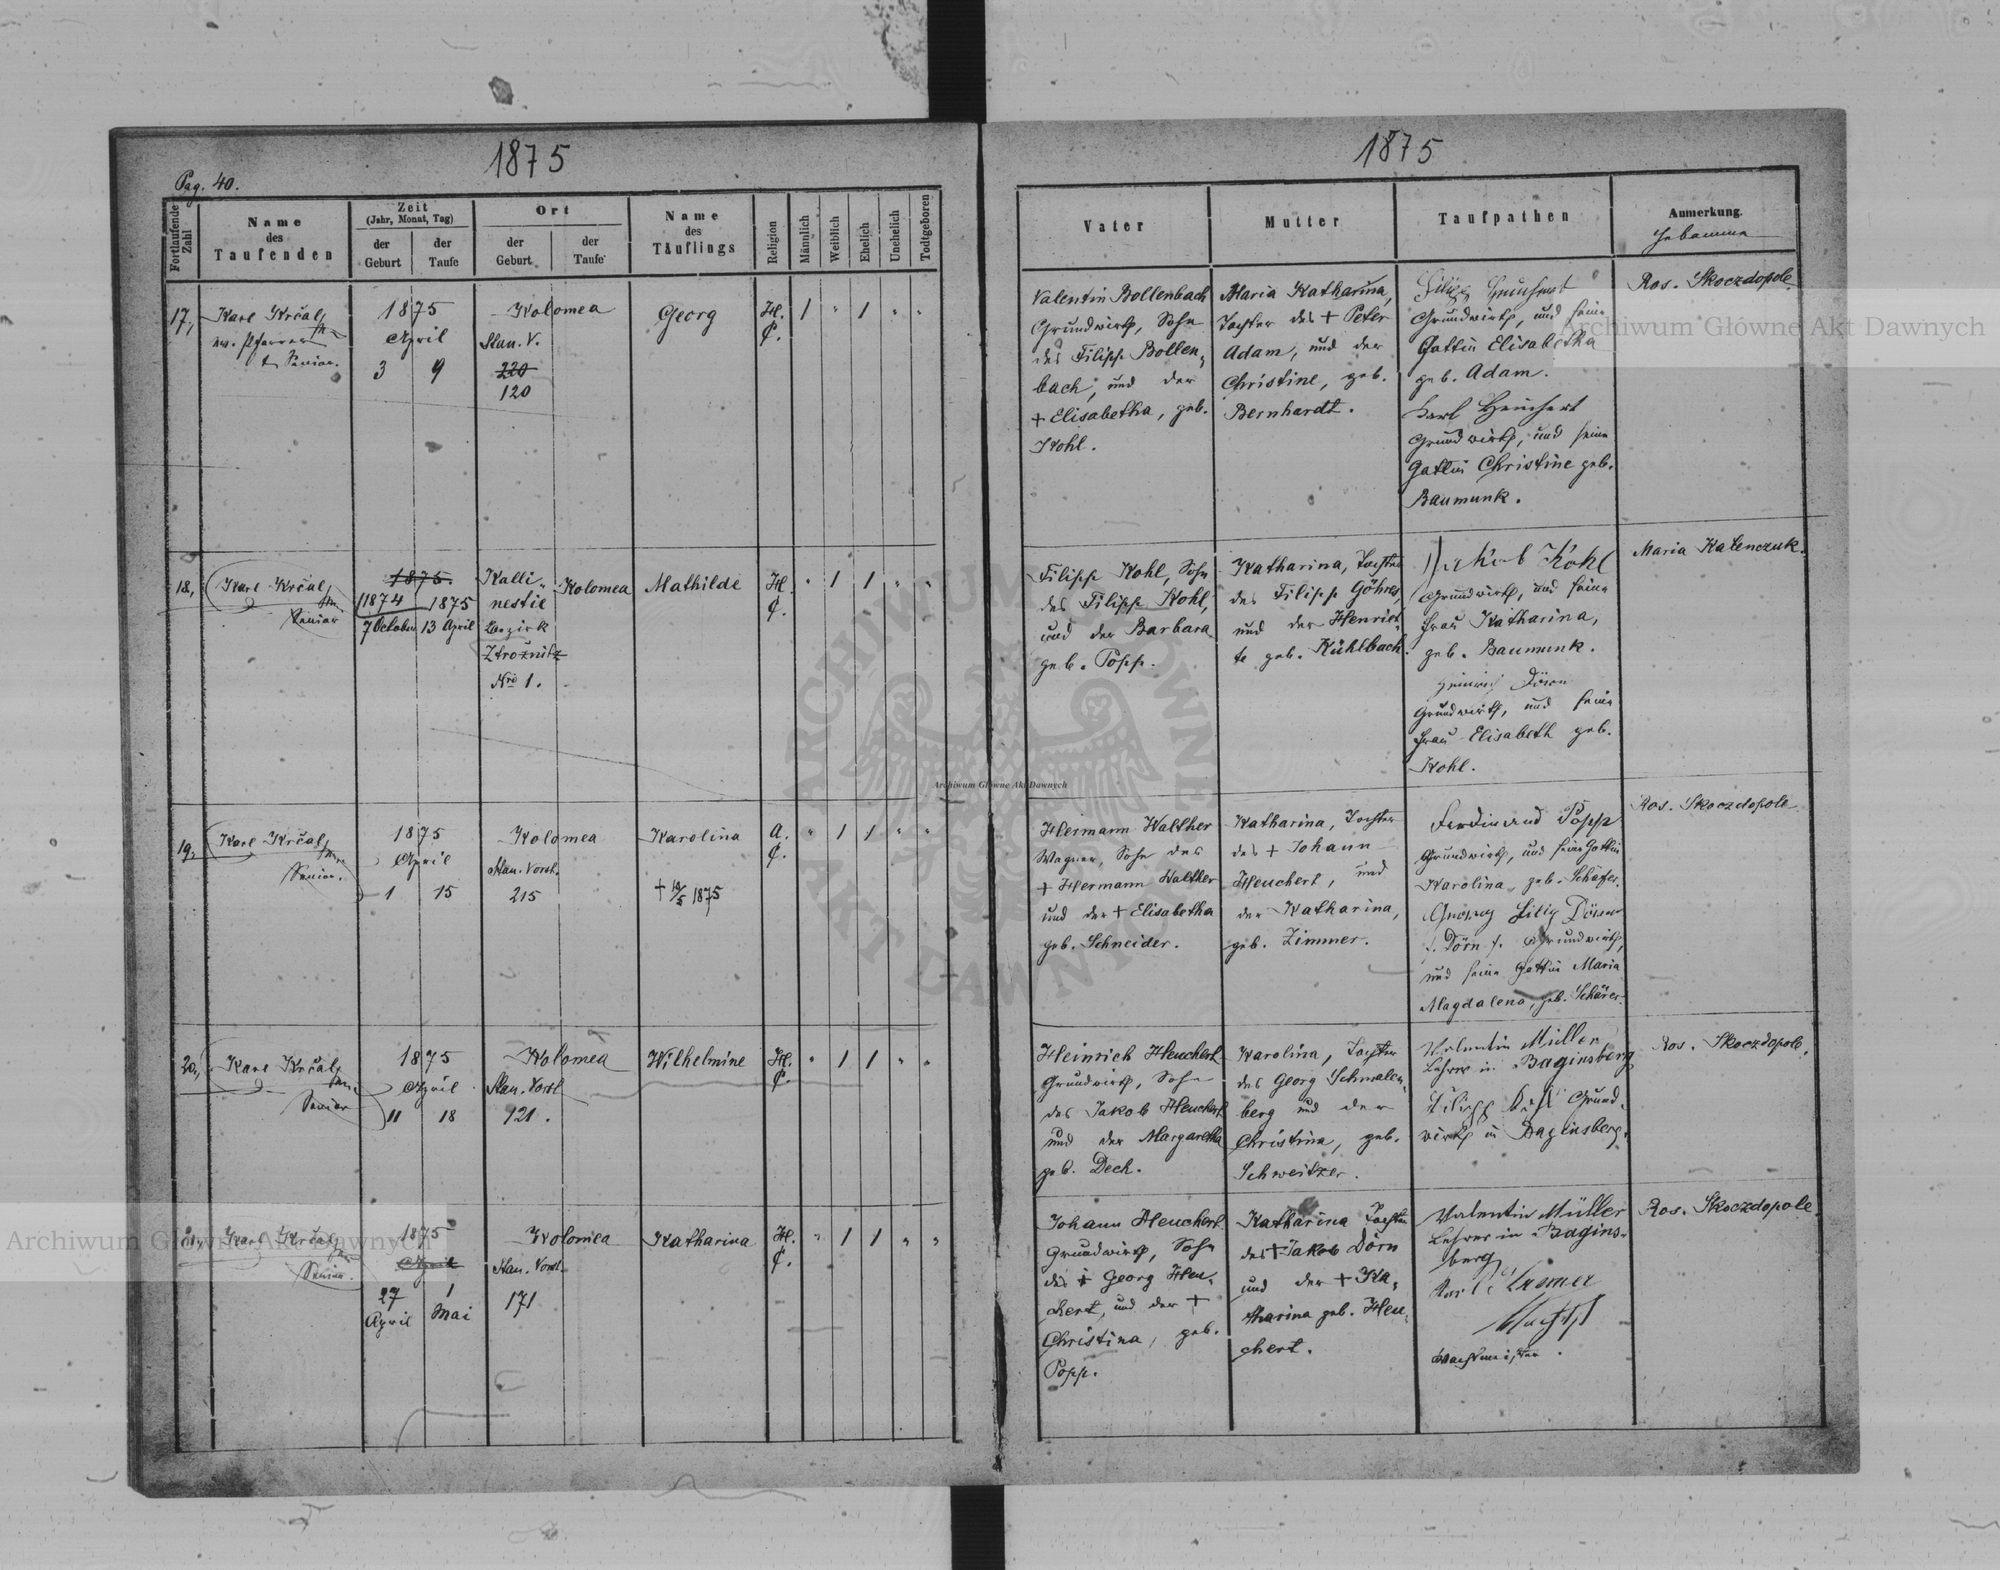 1875
Pag. 40.
Fortlaufende Zahl
Name des Taufenden
Zeit (Jahr, Monat, Tag)
der Geburt
der Taufe
Ort
der Geburt
der Taufe
Name des Täuflings
Religion
Männlich
Weiblich
Ehelich
Unehelich
Todtgeboren
17,
Karl Krčal
ev. Pfarrer
u. Senior.
1875
April
3 9
Kolomea
Stan. V.
220
120
Georg
H.
C.
1 " 1 " "
18,
Karl Krčal
Senior
1875.
1874 1875
7 October 13 April
Kalli-
nestie
Bezirk
Zfrožnitz
Nro 1.
Kolomea
Mathilde
H.
C.
" 1 1 " "
19,
Karl Krčal
Senior.
1875
April
1 15
Kolomea
Stan. Vorst.
215
Karolina
† 19/5 1875
A.
C.
" 1 1 " "
20,
Karl Krčal
Senior
1875
April
11 18
Kolomea
Stan. Vorst
121.
Wilhelmine
H.
C.
" 1 1 " "
21,
Karl Krčal
Senior.
1875
April
27 1
April Mai
Kolomea
Stan. Vorst.
171
Katharina
H.
C.
" 1 1 " "
1875
Vater
Mutter
Taufpathen
Anmerkung.
Hebamme
Valentin Bollenbach
Grundwirth, Sohn
des Filipp Bollen-
bach, und der
† Elisabetha, geb.
Kohl.
Maria Katharina,
Tochter des † Peter
Adam, und der
Christine, geb.
Bernhardt.
Filipp Heuchert
Grundwirth, und seine
Gattin Elisabetha
geb. Adam.
Karl Heuchert
Grundwirth, und seine
Gattin Christine geb.
Baumunk.
Ros. Skoczdopole
Filipp Kohl, Sohn
des Filipp Kohl,
und der Barbara
geb. Popp.
Katharina, Tochter
des Filipp Göhres,
und der Henriet-
te geb. Kühlbach.
Jakob Kohl
Grundwirth, und seine
Frau Katharina,
geb. Baumunk.
Heinrich Dörn
Grundwirth, und seine
Frau Elisabeth geb.
Kohl.
Maria Kalenczuk.
Hermann Walther
Wagner, Sohn des
† Hermann Walther
und der † Elisabetha
geb. Schneider.
Katharina, Tochter
des † Johann
Heuchert, und
der Katharina,
geb. Zimmer.
Ferdinand Popp
Grundwirth, und seine Gattin
Karolina, geb. Schäfer.
Georg Dörn
Dörn Grundwirth,
und seine Gattin Maria
Magdalena, geb. Schärer.
Ros. Skoczdopole
Heinrich Heuchert
Grundwirth, Sohn
des Jakob Heuchert
und der Margaretha
geb. Dech.
Karolina, Tochter
des Georg Schmalen-
berg und der
Christina, geb.
Schweitzer.
Valentin Müller
Lehrer in Baginsberg
Filipp Grund-
wirth in Baginsberg.
Ros. Skoczdopole.
Johann Heuchert
Grundwirth, Sohn
des † Georg Heu-
chert, und der †
Christina, geb.
Popp.
Katharina Tochter
des † Jakob Dörn
und der † Ka-
tharina geb. Heu-
chert.
Valentin Müller
Lehrer in Bagins-
berg
Karl Kromer
Wachtmeister.
Ros. Skoczdopole.
Archiwum Główne Akt Dawnych
Archiwum Główne Akt Dawnych
Archiwum Główne Akt Dawnych
ARCHIWUM GŁÓWNE AKT DAWNYCH